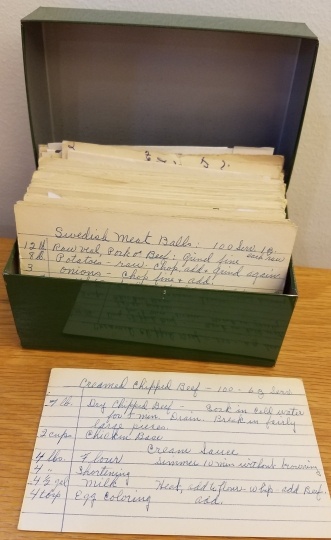 Swedish Meat Balls: 100 Serv
12 lb Raw veal, Pork & Beef: Grind fine
8 lb Potatoes - raw - chop, add & grind again
3 onions - chop fine & add.
Creamed Chipped Beef - 100 - 6 oz Serv
7 lb. Dry Chipped Beef - in cold water
for 5 min. Drain. Break in fairly
large pieces.
2 cups Chicken Base
Cream Sauce
4 lbs. Flour Simmer 10 min without browning
4 - Shortening
4 ½ gal Milk Heat, add to flour - whip - add Beef.
4 tbsp Egg Coloring add.